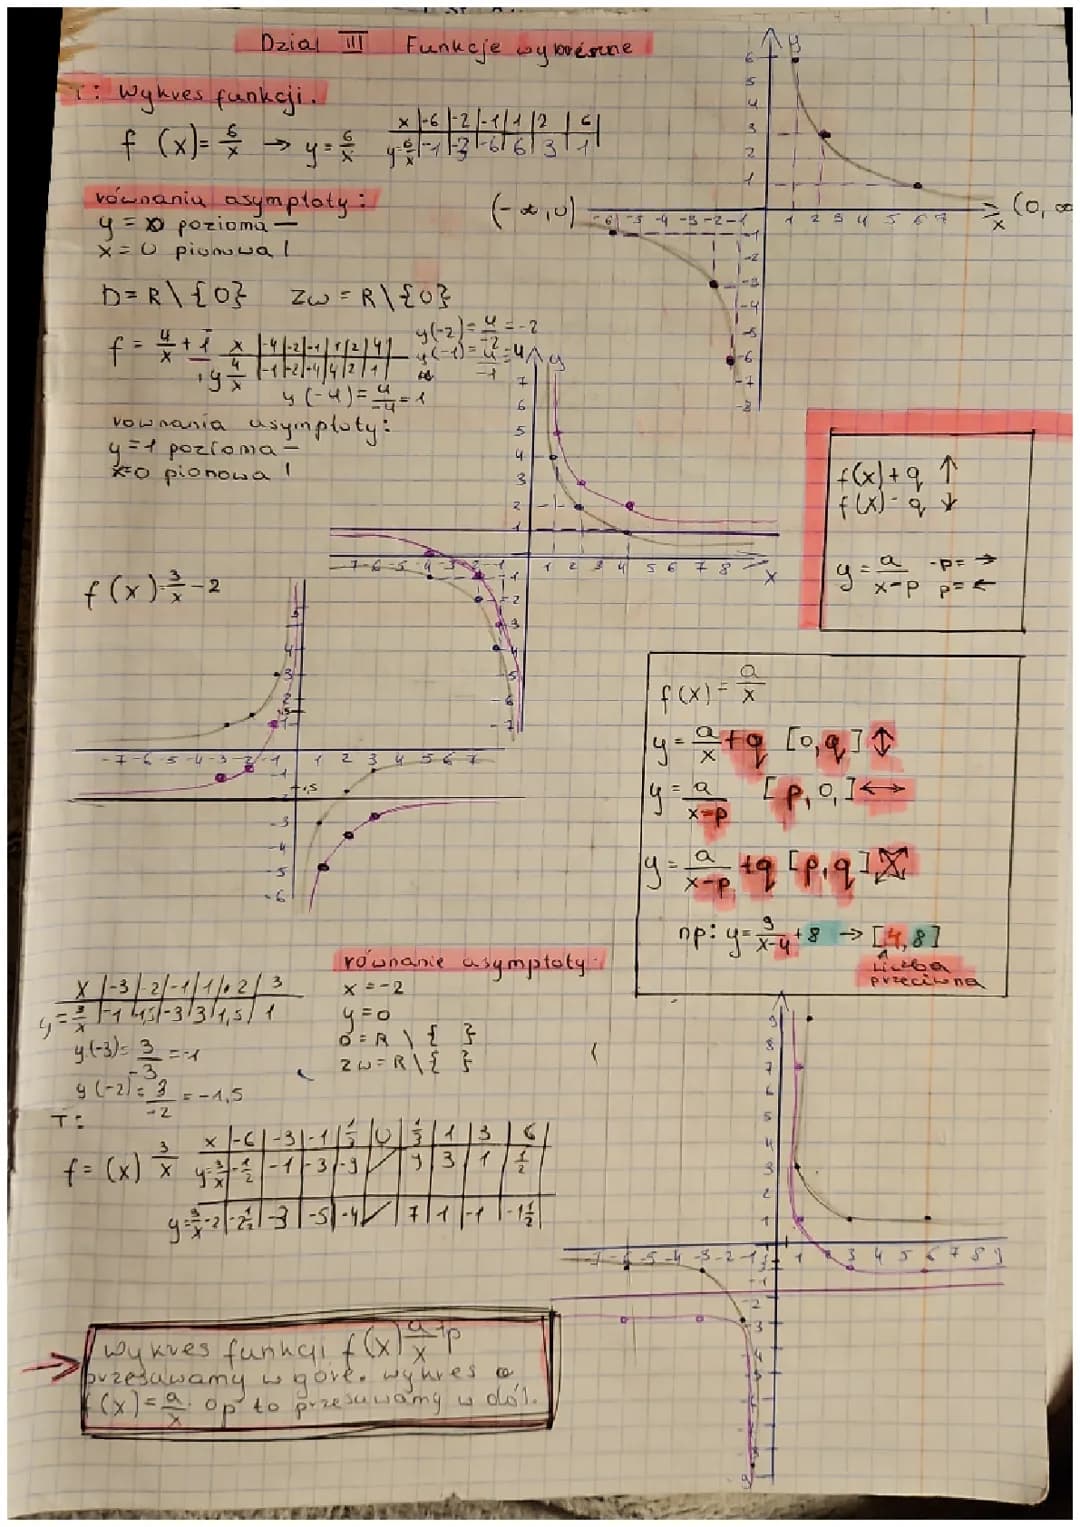 Dział III Funkcje wymierne
T: Wykres funkcji.
f (x) = 6/x → y = 6/x
x | -6 | -2 | -1 | 1 | 2 | 6 |
y=6/x | -1 | -3 | -6 | 6 | 3 | 1
równania asymptoty:
y = 0 pozioma —
x = 0 pionowa |
(-∞, 0)
(0, ∞
D = R \ {0} Zw = R \ {0}
f = 4/x + 1
x | -4 | -2 | -1 | 1 | 2 | 4 |
y 4/x | -1 | -2 | -4 | 4 | 2 | 1 |
y(-2) = 4/-2 = -2
y(-1) = 4/-1 = 4
y(-4) = 4/-4 = 1
rownania asymptoty:
y = 1 pozioma —
x=0 pionowa |
f(x)+q ↑
f(x)-q ↓
y = a/x-p -p= →
p= ←
f(x) = 3/x - 2
f(x) = a/x
y = a/x + q [0, q] ↕
y = a/x-p [p, 0,] ↔
y = a/x-p + q [p, q]
np: y = 9/x-4 + 8 → [4, 8]
liczba
przeciwna
x | -3 | -2 | -1 | 1 | 2 | 3
y = 3/x | -1 | 1,5 | -3 | 3 | 1,5 | 1
y(-3) = 3/-3 = -1
y(-2) = 3/-2 = -1,5
równanie asymptoty:
x = -2
y = 0
D = R \ { }
Zw = R \ { }
T:
f = (x) 3/x
x | -6 | -3 | -1 | 1/3 | 0 | 1/3 | 1 | 3 | 6 |
y=3/x | -1/2 | -1 | -3 | -9 | | 9 | 3 | 1 | 1/2
y=3/x-2 | -2 1/2 | -3 | -5 | -4 | | 7 | 1 | -1 | -1 1/2 |
Wykres funkcji f(x) a/x +p
przesuwamy w góre. wykres
f(x) = a/x op to przesuwamy w dół.